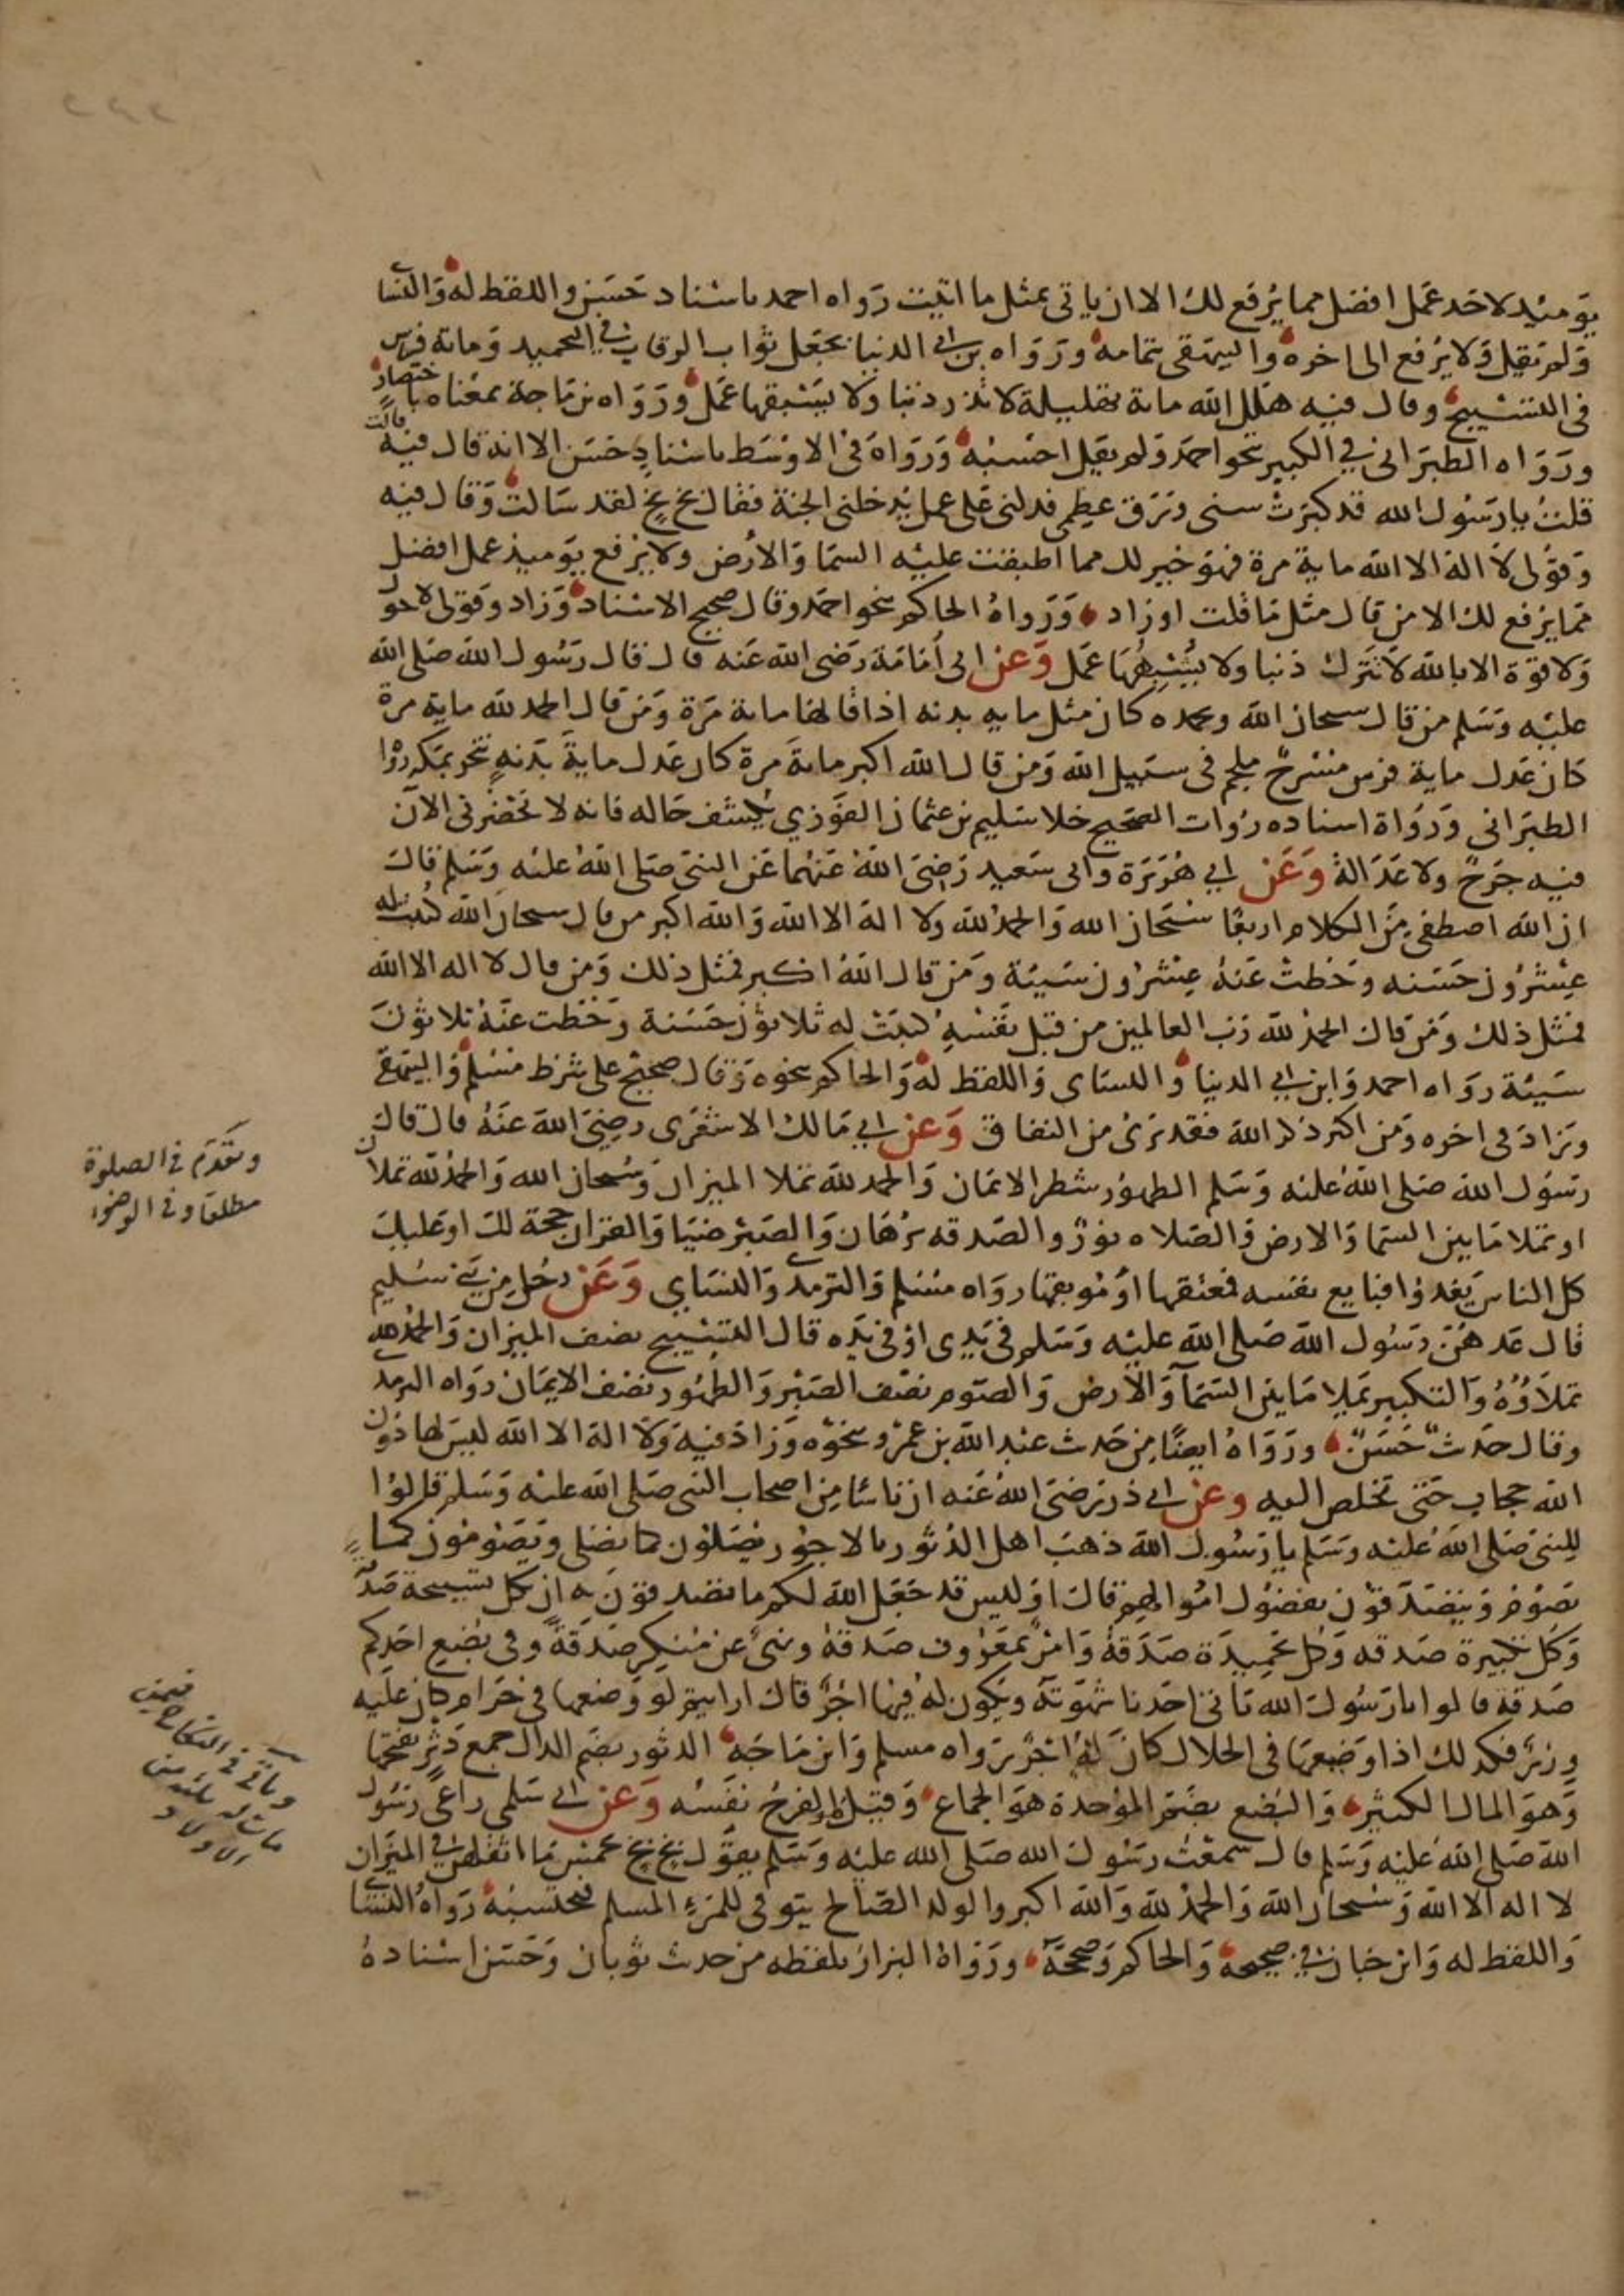 يومئذ لاحد عمل افضل مما يرفع لك الا ان ياتي بمثل ما اتيت رواه احمد باسناد حسن واللفظ له والنساى
ولم يقل ولا يرفع الى اخره والبيهقى بتمامه ورواه بن ابي الدنيا فجعل ثواب الرقاب في التحميد ومائة فرس
في التسبيح وقال فيه هلل الله مائة تهليلة لا تذر ذنبا ولا يسبقها عمل ورواه بن ماجة بمعناه باختصار
ورواه الطبراني في الكبير بنحو احمد ولم يقل احسبه ورواه في الاوسط باسناد حسن الا انه قال فيه قالت
قلت يا رسول الله قد كبرت سنى ورق عظمى فدلنى على عمل يدخلنى الجنة فقال بخ بخ لقد سالت وقال فيه
وقولى لا اله الا الله ماية مرة فهو خير لك مما اطبقت عليه السما والارض ولا يرفع يوميذ عمل افضل
مما يرفع لك الا من قال مثل ما قلت او زاد ورواه الحاكم بنحو احمد وقال صحيح الاسناد وزاد وقولى لا حول
ولا قوة الا بالله لا تترك ذنبا ولا يشبهها عمل وعن ابى امامة رضى الله عنه قال قال رسول الله صلى الله
عليه وسلم من قال سبحان الله وبحمده كان مثل مايه بدنه اذا قالها مائة مرة ومن قال الحمد لله ماية مرة
كان عدل ماية فرس مسرج ملجم في سبيل الله ومن قال الله اكبر مائة مرة كان عدل ماية بدنة تنحر بمكة رواه
الطبراني ورواة اسناده روات الصحيح خلا سليم بن عثمان الفوزي يكشف حاله فانه لا يحضرنى الان
فيه جرح ولا عدالة وعن ابي هريرة وابى سعيد رضى الله عنهما عن النبى صلى الله عليه وسلم قال
ان الله اصطفى من الكلام اربعا سبحان الله والحمد لله ولا اله الا الله والله اكبر من قال سبحان الله كتبت له
عشرون حسنه وحطت عنه عشرون سيئة ومن قال الله اكبر فمثل ذلك ومن قال لا اله الا الله
فمثل ذلك ومن قال الحمد لله رب العالمين من قبل نفسه كتبت له ثلاثون حسنة وحطت عنه ثلاثون
سيئة رواه احمد وابن ابي الدنيا والنساى واللفظ له والحاكم بنحوه وقال صحيح على شرط مسلم والبيهقى
وزاد في اخره ومن اكثر ذكر الله فقد برى من النفاق وعن ابي مالك الاشعرى رضى الله عنه قال قال
رسول الله صلى الله عليه وسلم الطهور شطر الايمان والحمد لله تملا الميزان وسبحان الله والحمد لله تملان
او تملا ما بين السما والارض والصلاه نور والصدقه برهان والصبر ضيا والقران حجة لك او عليك
كل الناس يغدوا فبايع نفسه فمعتقها او موبقها رواه مسلم والترمدى والنساي وعن رجل من بني سليم
قال عدهن رسول الله صلى الله عليه وسلم في يدى او في يده قال التسبيح نصف الميزان والحمد لله
تملاؤه والتكبير تملا ما بين السمآ والارض والصوم نصف الصبر والطهور نصف الايمان رواه الترمدى
وقال حدث حسن ورواه ايضا من حدث عبد الله بن عمرو بنحوه وزاد فيه ولا اله الا الله ليس لها دون
الله حجاب حتى تخلص اليه وعن ابي ذر رضى الله عنه ان ناسا من اصحاب النبى صلى الله عليه وسلم قالوا
للنبى صلى الله عليه وسلم يا رسول الله ذهب اهل الدثور بالاجور يصلون كما نصلى ويصومون كما
نصوم ويتصدقون بفضول اموالهم قال اوليس قد جعل الله لكم ما تصدقون به ان بكل تسبيحة صدقة
وكل تكبيرة صدقه وكل تحميدة صدقة وامر بمعروف صدقة ونهى عن منكر صدقة وفى بضع احدكم
صدقة قالوا يا رسول الله ياتى احدنا شهوته ويكون له فيها اجر قال ارايتم لو وضعها في حرام كان عليه
وزر فكدلك اذا وضعها في الحلال كان له اجر رواه مسلم وابن ماجه الدثور بضم الدال جمع دثر بفتحها
وهو المال الكثير والبضع بضم الموحدة هو الجماع وقيل الفرج نفسه وعن ابي سلمى راعى رسول
الله صلى الله عليه وسلم قال سمعت رسول الله صلى الله عليه وسلم يقول بخ بخ بخمس ما اثقلهن في الميزان
لا اله الا الله وسبحان الله والحمد لله والله اكبر والولد الصالح يتوفى للمرء المسلم فيحتسبه رواه النساى
واللفظ له وابن حبان في صحيحه والحاكم وصححه ورواه البزار بلفظه من حدث ثوبان وحسن اسناده
وتقدم في الصلوة
مطلقا وفي الوضوء
وياتى في النكاح فيمن
مات له ثلثة من
الاولاد